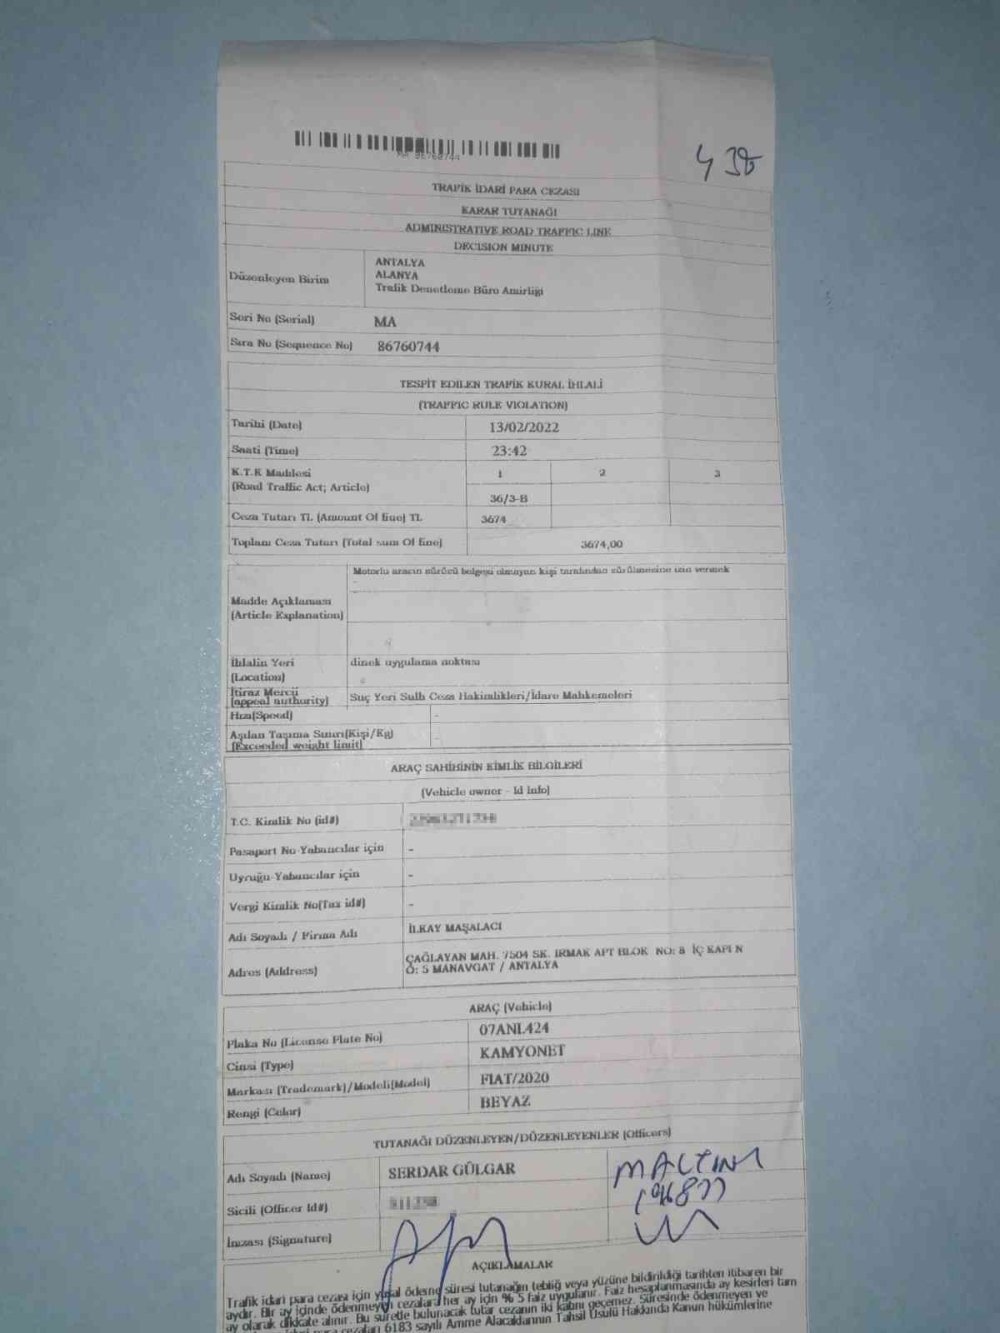 438
TRAFİK İDARİ PARA CEZASI
KARAR TUTANAĞI
ADMINISTRATIVE ROAD TRAFFIC LINE
DECISION MINUTE
Düzenleyen Birim
ANTALYA
ALANYA
Trafik Denetleme Büro Amirliği
Seri No (Serial) MA
Sıra No (Sequence No) 86760744
TESPİT EDİLEN TRAFİK KURAL İHLALİ
(TRAFFIC RULE VIOLATION)
Tarihi (Date) 13/02/2022
Saati (Time) 23:42
K.T.K Maddesi 1 2 3
(Road Traffic Act; Article) 36/3-B
Ceza Tutarı TL (Amount Of fine) TL 3674
Toplam Ceza Tutarı (Total sum Of fine) 3674,00
Motorlu aracın sürücü belgesi olmayan kişi tarafından sürülmesine izin vermek
Madde Açıklaması
(Article Explanation)
İhlalin Yeri dinek uygulama noktası
(Location)
İtiraz Mercii Suç Yeri Sulh Ceza Hakimlikleri/İdare Mahkemeleri
(appeal authority)
Hızı(Speed) -
Aşılan Taşıma Sınırı(Kişi/Kg) -
(Exceeded weight limit)
ARAÇ SAHİBİNİN KİMLİK BİLGİLERİ
(Vehicle owner - Id info)
T.C. Kimlik No (id#)
Pasaport No-Yabancılar için -
Uyruğu-Yabancılar için -
Vergi Kimlik No(Tax id#) -
Adı Soyadı / Firma Adı İLKAY MAŞALACI
Adres (Address) ÇAĞLAYAN MAH. 7504 SK. IRMAK APT BLOK NO: 8 İÇ KAPI N
O: 5 MANAVGAT / ANTALYA
ARAÇ (Vehicle)
Plaka No (License Plate No) 07ANL424
Cinsi (Type) KAMYONET
Markası (Trademark)/Modeli(Model) FIAT/2020
Rengi (Color) BEYAZ
TUTANAĞI DÜZENLEYEN/DÜZENLEYENLER (Officers)
Adı Soyadı (Name) SERDAR GÜLGAR
Sicili (Officer Id#)
İmzası (Signature)
AÇIKLAMALAR
Trafik idari para cezası için yasal ödeme süresi tutanağın tebliğ veya yüzüne bildirildiği tarihten itibaren bir
aydır. Bir ay içinde ödenmeyen cezalara her ay için % 5 faiz uygulanır. Faiz hesaplanmasında ay kesirleri tam
ay olarak dikkate alınır. Bu suretle bulunacak tutar cezanın iki katını geçemez. Süresinde ödenmeyen ve
para cezaları 6183 sayılı Amme Alacaklarının Tahsil Usulü Hakkında Kanun hükümlerine